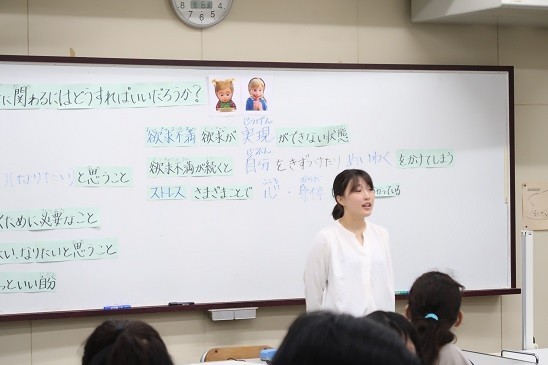 に関わるにはどうすればいいだろうか?
欲求不満 欲求が実現ができない状態
じつげん
欲求不満が続くと 自分をきずつけたり めいわくをかけてしまう
じぶん
ストレス さまざまことで 心・身体
と思うこと
くために必要なこと
たい、なりたいと思うこと
っといい自分